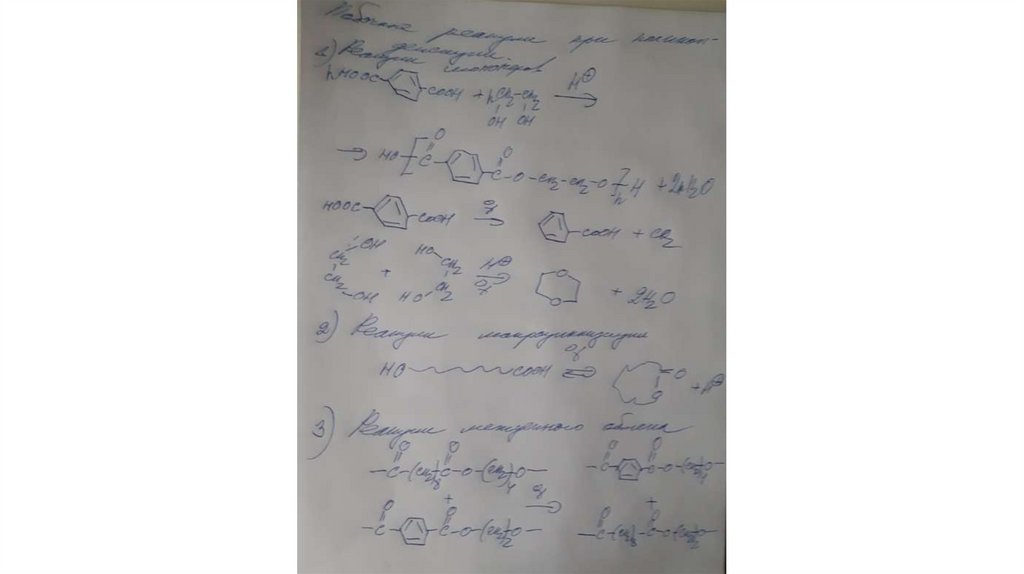 Побочные реакции при поликон-
денсации.
1) Реакции мономеров
nHOOC–COOH + nCH2–CH2 H⊕ →
OH OH
→ HO–[C(=O)–C(=O)–O–CH2–CH2–O]n–H + 2nH2O
HOOC–COOH → –COOH + CO2
CH2–OH HO–CH2 H⊕
+ → O O + 2H2O
CH2–OH HO–CH2
2) Реакции макроциклизации
HO~~~COOH ⇌ O O + H⊕
3) Реакции межцепного обмена
–C(=O)–(CH2)8–C(=O)–O–(CH2)4–O– –C(=O)–C(=O)–O–(CH2)4–O–
+ → +
–C(=O)–C(=O)–O–(CH2)2–O– –C(=O)–(CH2)8–C(=O)–O–(CH2)2–O–